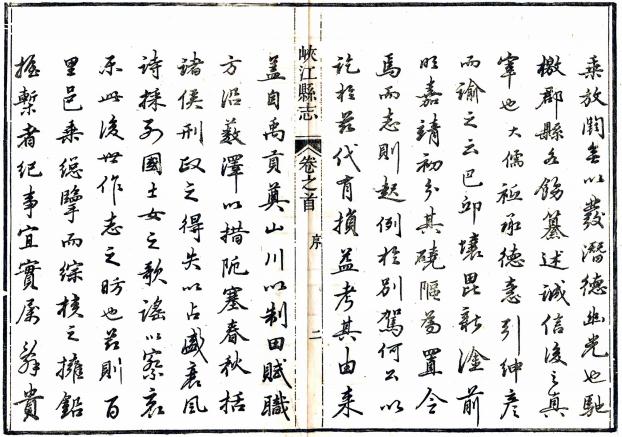 乘放闕無以發潛德幽光也馳
檄郡縣各飭纂述誠信後之具
宰也大儒祗承德意引紳彥
而諭之云巴邱壤毘新淦前
明嘉靖初分其磽為置令
焉而志則起例於別駕何公以
訖於茲代有損益考其由來
峽江縣志 卷之首 序 二
蓋自禹貢奠山川以制田賦職
方沿藪澤以措阨塞春秋括
諸侯刑政之得失以占盛衰風
詩採列國士女之歌謠以察哀
樂此後世作志之昉也茲則百
里邑乘總擥而綜核之擁鉛
握槧者紀事宜實屬辭貴